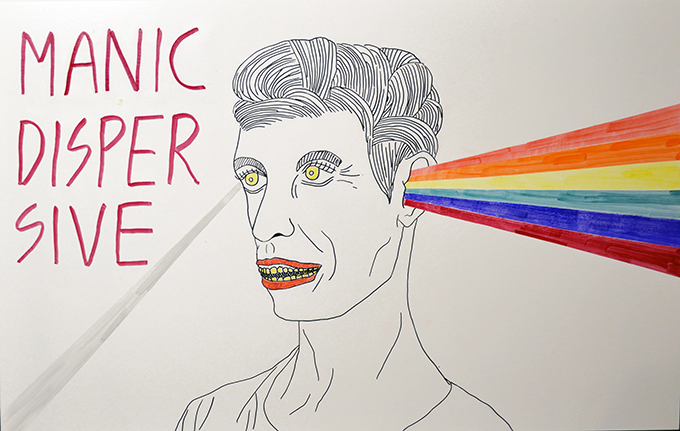 MANIC
DISPER
SIVE